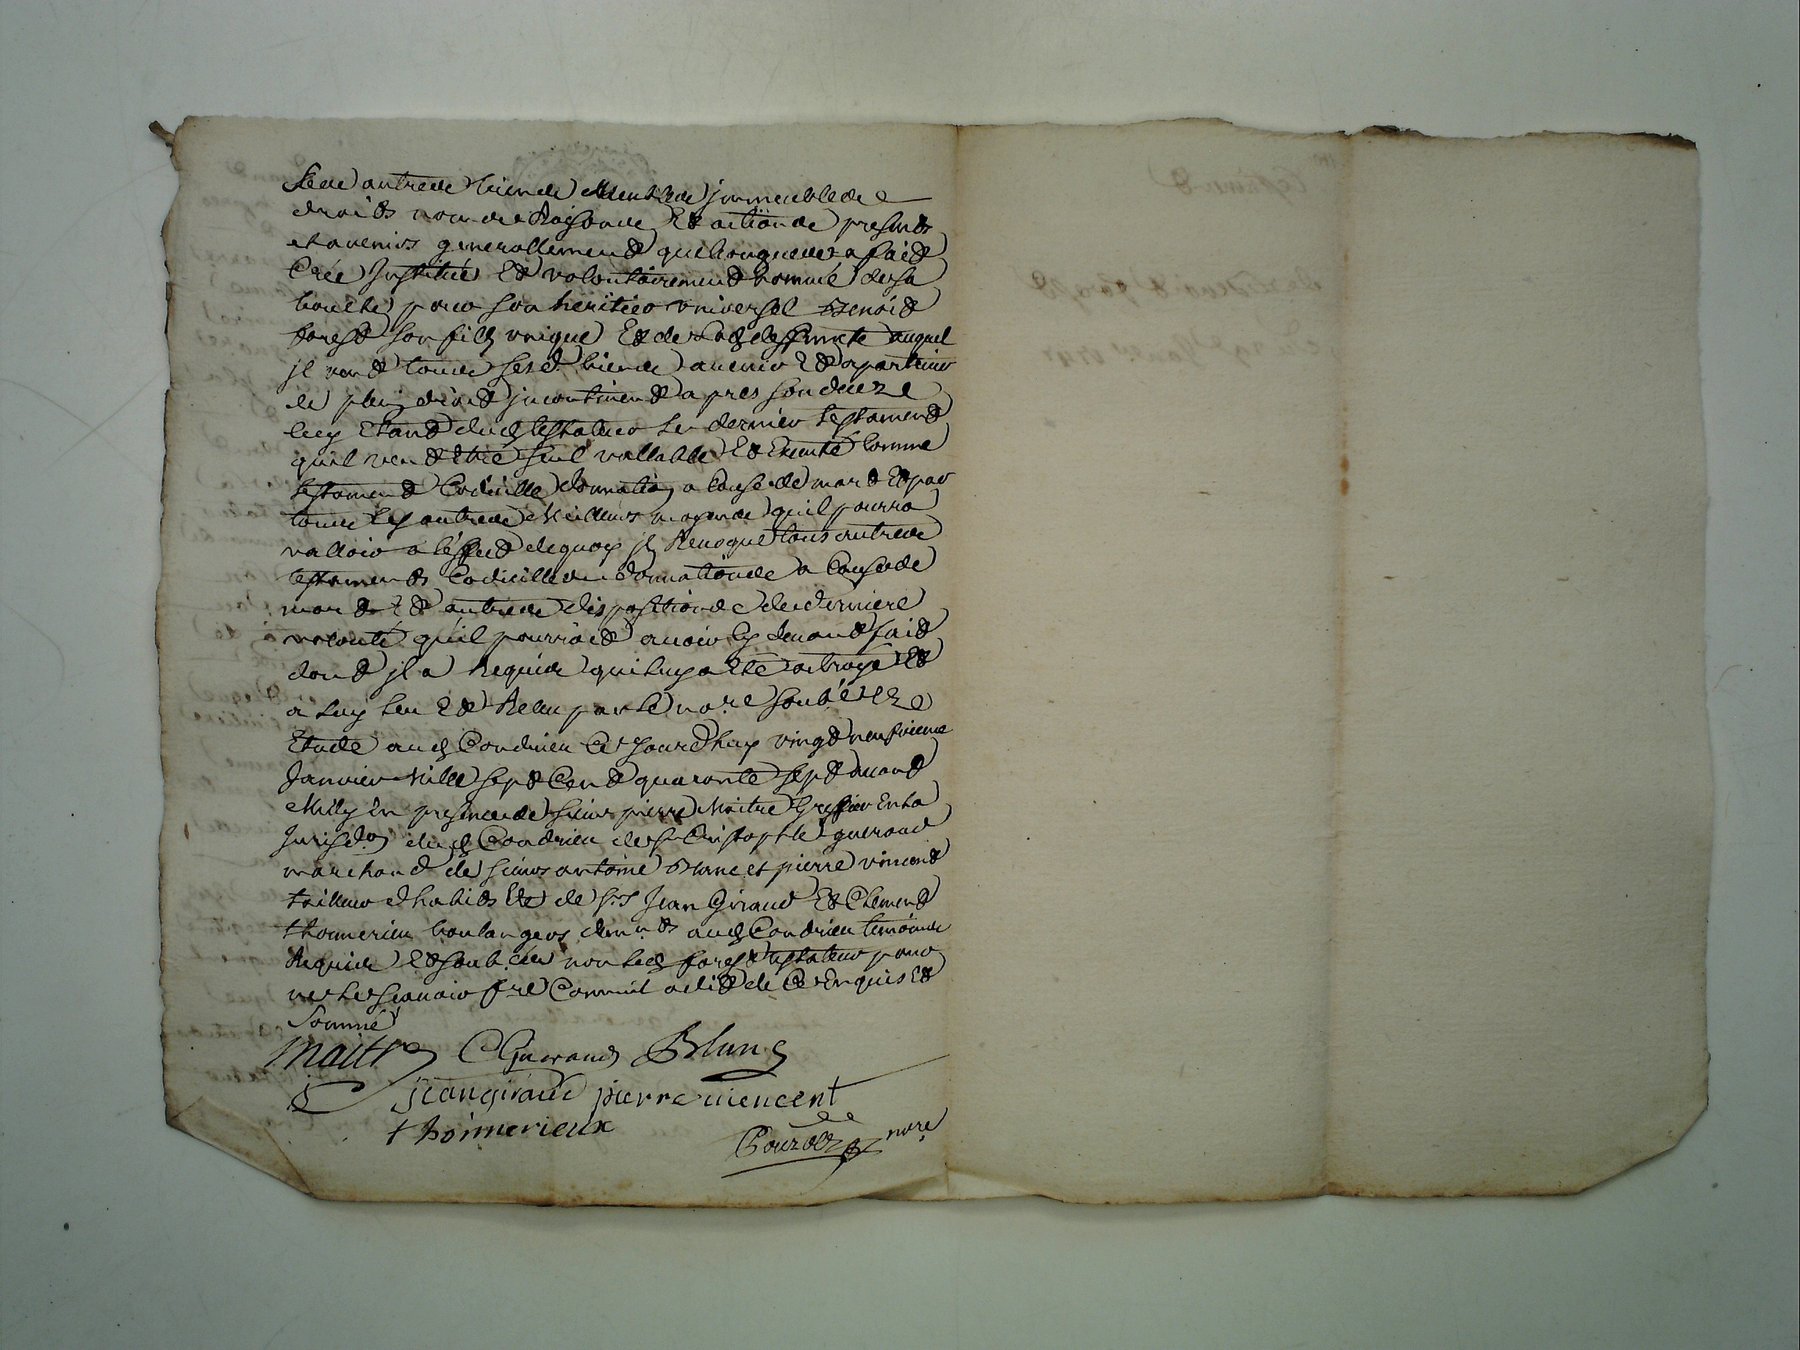 Ses autres biens Meubles jmmeubles
droits noms Raisons Et actions presents
et avenirs generallement quelconques a fait
Créé Jnstitué Et volontairement nommé de sa
bouche pour son heritier vniversel Benoit
forest son fils vnique Et de lad deffunte auquel
jl veut tous sesd biens avenir Et apartenir
de plein droit jncontinent apres son decez
Cecy Etant dud testateur Le dernier testament
quil veut Etre seul vallable Et Executé Comme
testament Codicille donnation a Cause de mort Et par
tous les autres Meilleurs moyens quil pourra
valloir a l'effet dequoy jl Revoque tous autres
testaments Codicilles donnations a Cause de
mort Et autres dispositions de derniere
volonté quil pourroit avoir Cy devant fait
dont jl a Requis qui luy a Eté octroyé Et
a Luy Leu Et Releu par le no.re soub.né
Etude aud Condrieu Ce jourdhuy vingt neufvieme
Janvier Mille sept Cent quarante sept avant
Midy En presence de sieur pierre Maitre Greffier En la
Jurisdon dud Condrieu de sr Cristophle Gueraud
marchand de sieurs antoine Blanc et pierre vincent
tailleur dhabits Et de srs Jean Giraud Et Clement
thonnerieu boulangers demts aud Condrieu temoins
Requis Et soub.nés non led forest testateur pour
ne Le sçavoir fre Comme il a dit de Ce Enquis Et
Sommé
Maitre CGueraud Blanc
jean giraud pierre viencent
thonnerieux
nore